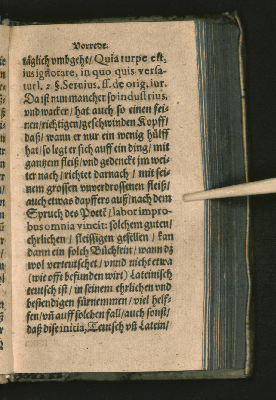 Vorrede.
täglich vmbgeht/ Quia turpe est,
ius ignorare, in quo quis versa-
tur l. 2. §. Seruius. ff. de orig. iur.
Da ist nun mancher so industrius,
vnd wacker/ hat auch so einen fei-
nen/richtigen/geschwinden Kopff/
daß/ wann er nur ein wenig hülff
hat/ so legt er sich auff ein ding/ mit
gantzem fleiß/ vnd gedenckt jm wei-
ter nach/ richtet darnach / mit sei-
nem grossen vnverdrossenen fleiß/
auch etwas dapffers auß/ nach dem
Spruch des Poetæ/ labor impro-
bus omnia vincit: solchem guten/
ehrlichen / fleissigen gesellen / kan
dann ein solch Büchlein/ wann dz
wol verteutschet / vnnd nicht etwa
(wie offt befunden wirt) Lateinisch
teutsch ist / in seinem ehrlichen vnd
bestendigen fürnemmen / viel helf-
fen/ vñ auff solchen fall/auch sonst/
daß dise initia, Teutsch vñ Latein/